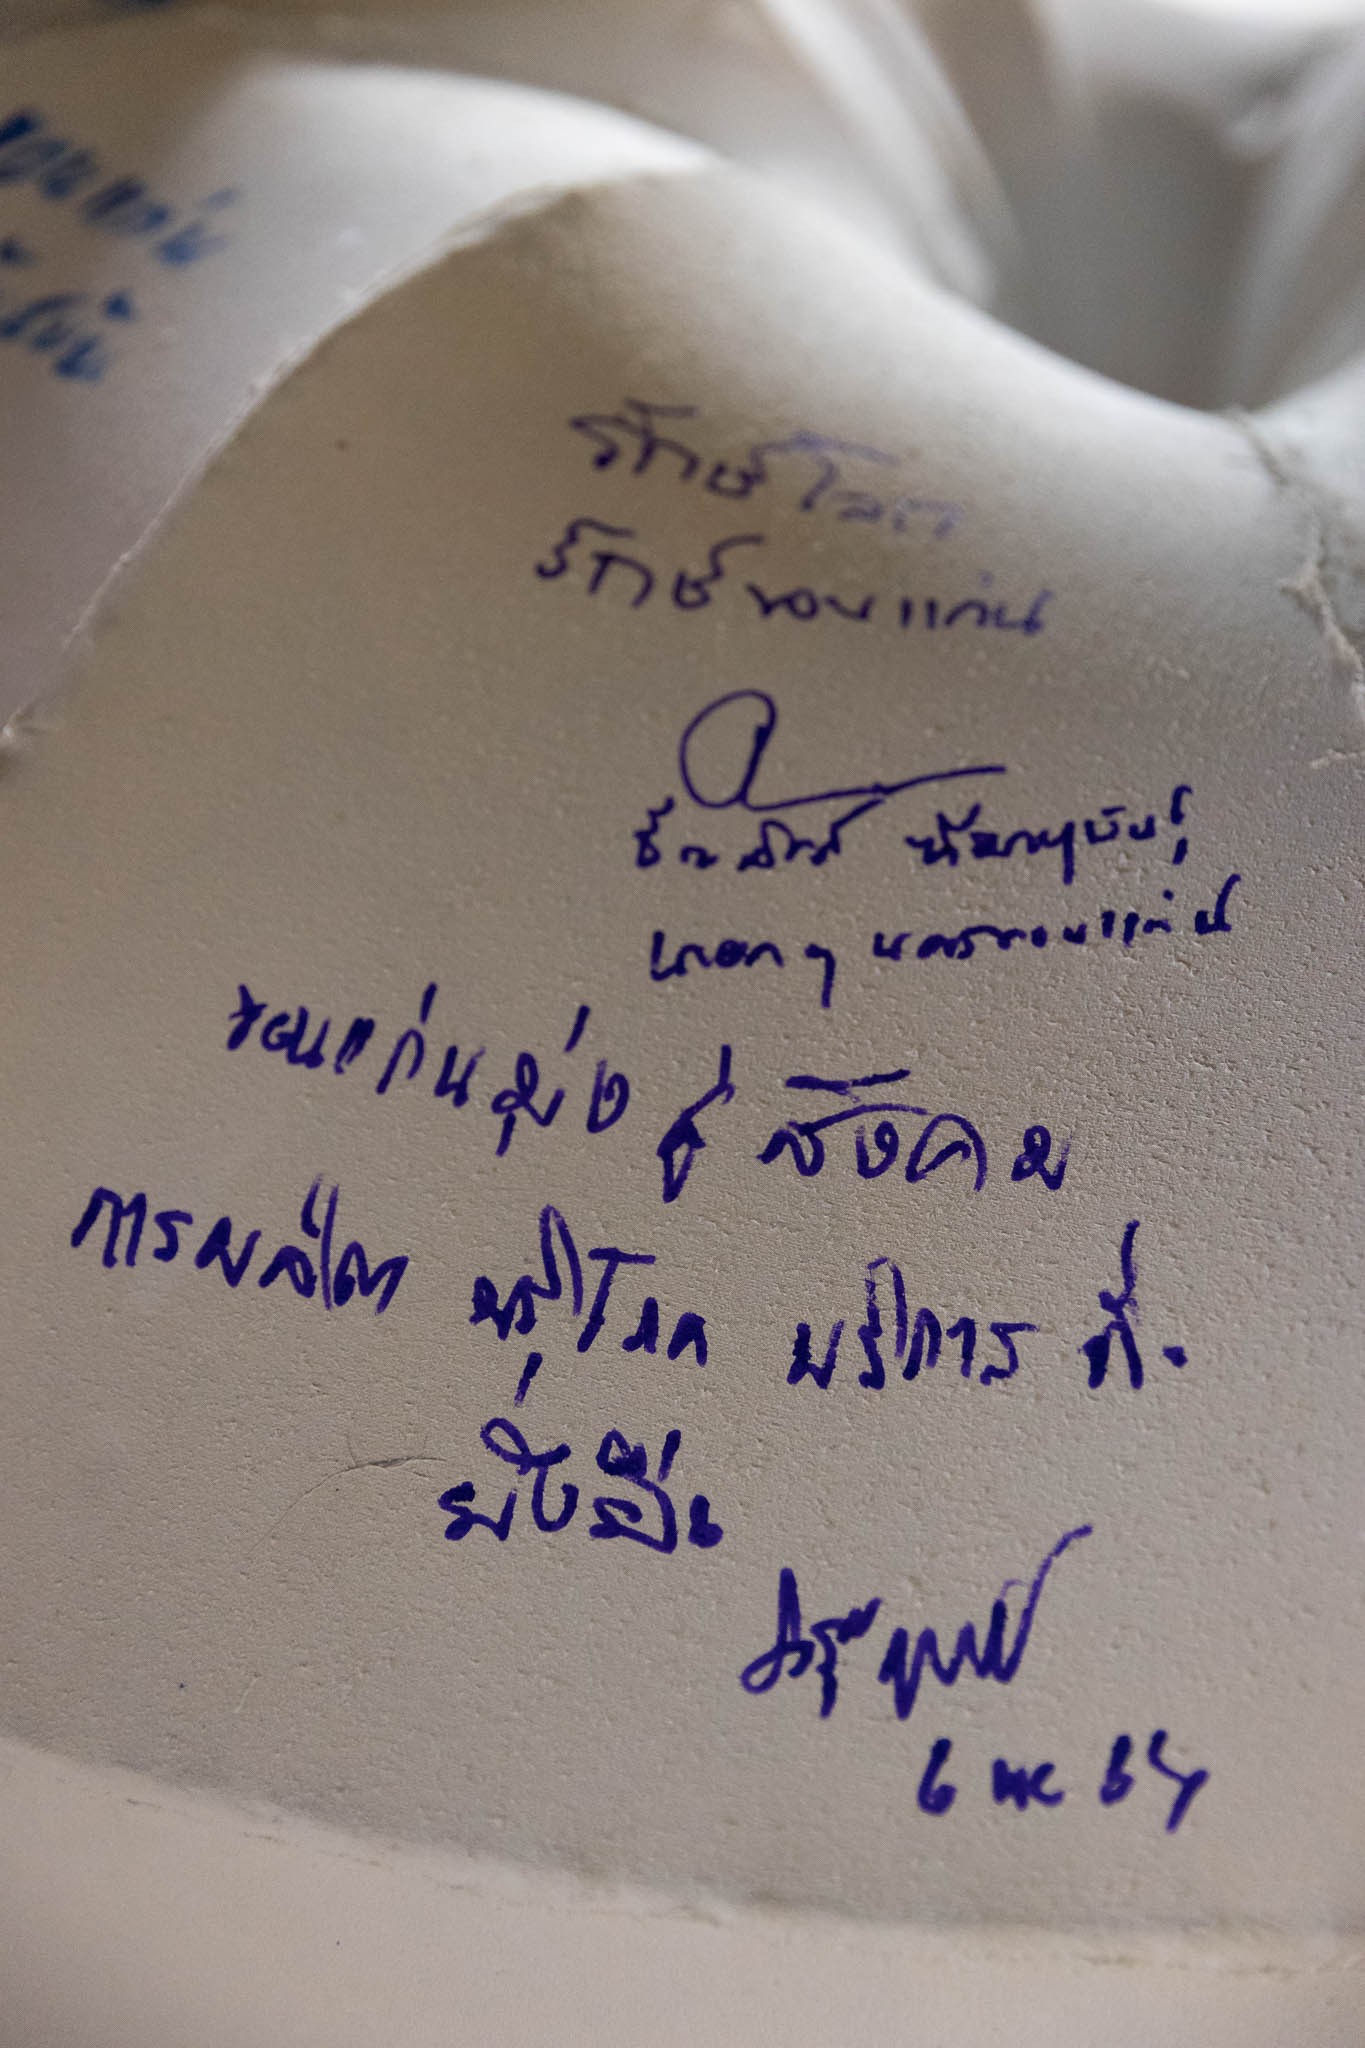 ขอนแก่น
รักษ์โลก
รักษ์ขอนแก่น
ธีระศักดิ์ ฑีฆายุพันธุ์
นายกฯ นครขอนแก่น
ขอนแก่นมุ่งสู่สังคม
การผลิต บริโภค บริการ ที่
ยั่งยืน
6 พค 65